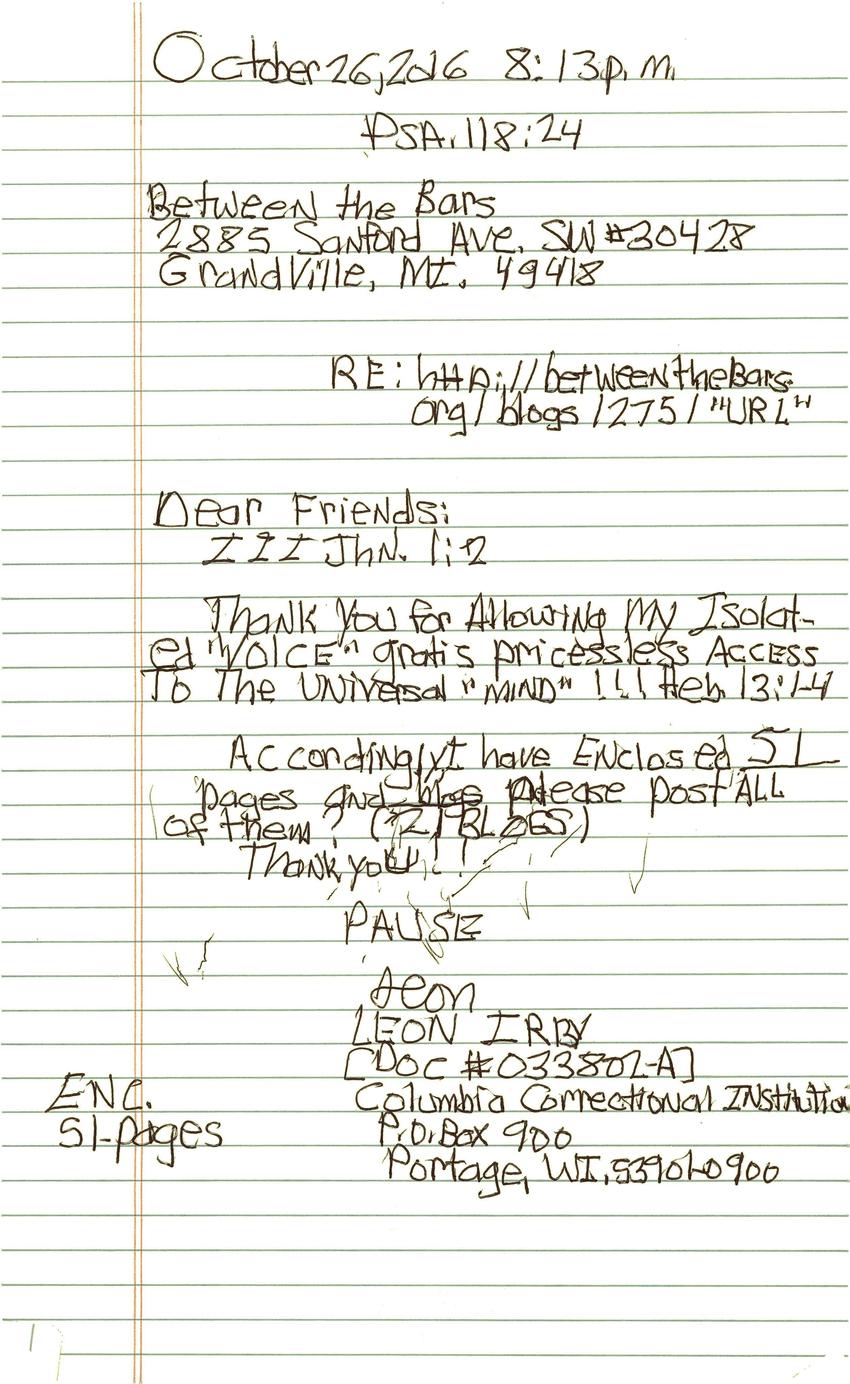 October 26, 2016 8:13 p.m.
PSA. 118:24
Between the Bars
2885 Sanford Ave. SW #30428
Grandville, MI. 49418
RE: http://betweenthebars.
org/blogs/1275/"URL"
Dear Friends:
III Jhn. 1:2
Thank You for Allowing My Isolat-
ed "VOICE" gratis pricessless Access
To The Universal "MIND" !!! Heb. 13:1-4
Accordingly I have Enclosed 51
pages and blogs please post ALL
of them? ("2" BLOGS)
Thank you!!!
PAUSE
Leon
LEON IRBY
[DOC #033802-A]
Columbia Correctional Institution
P.O. Box 900
Portage, WI. 53901-0900
ENC.
51-pages
1